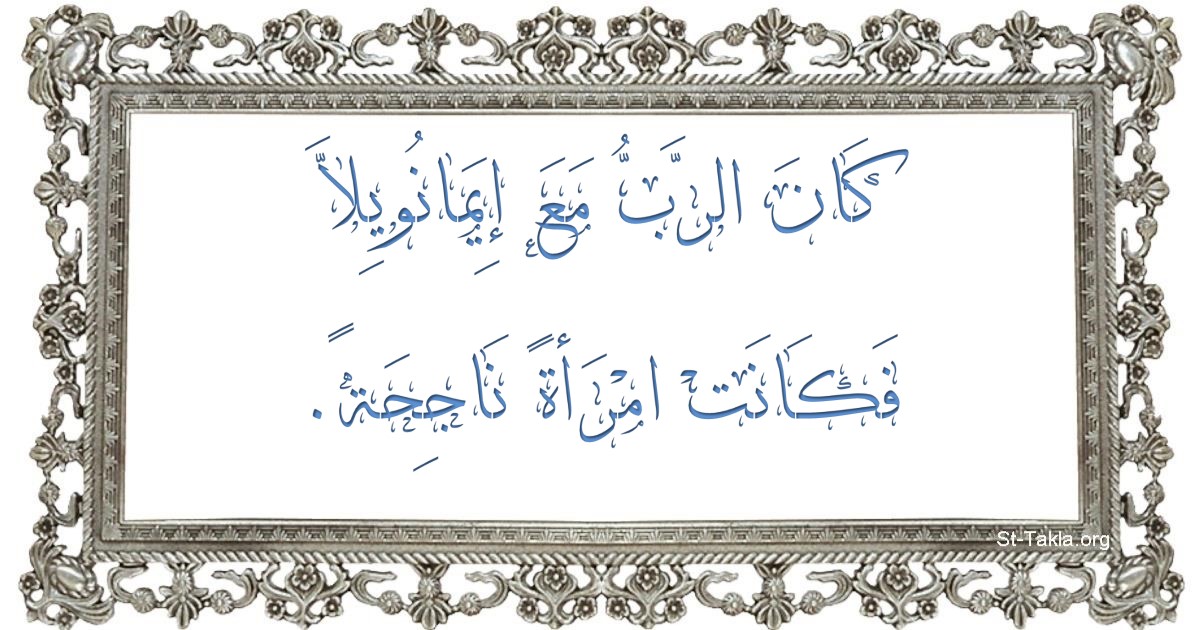 كَانَ الرَّبُّ مَعَ إِيَمَانُويِلاَّ
فَكَانَتْ امْرَأَةً نَاجِحَةً.
St-Takla.org